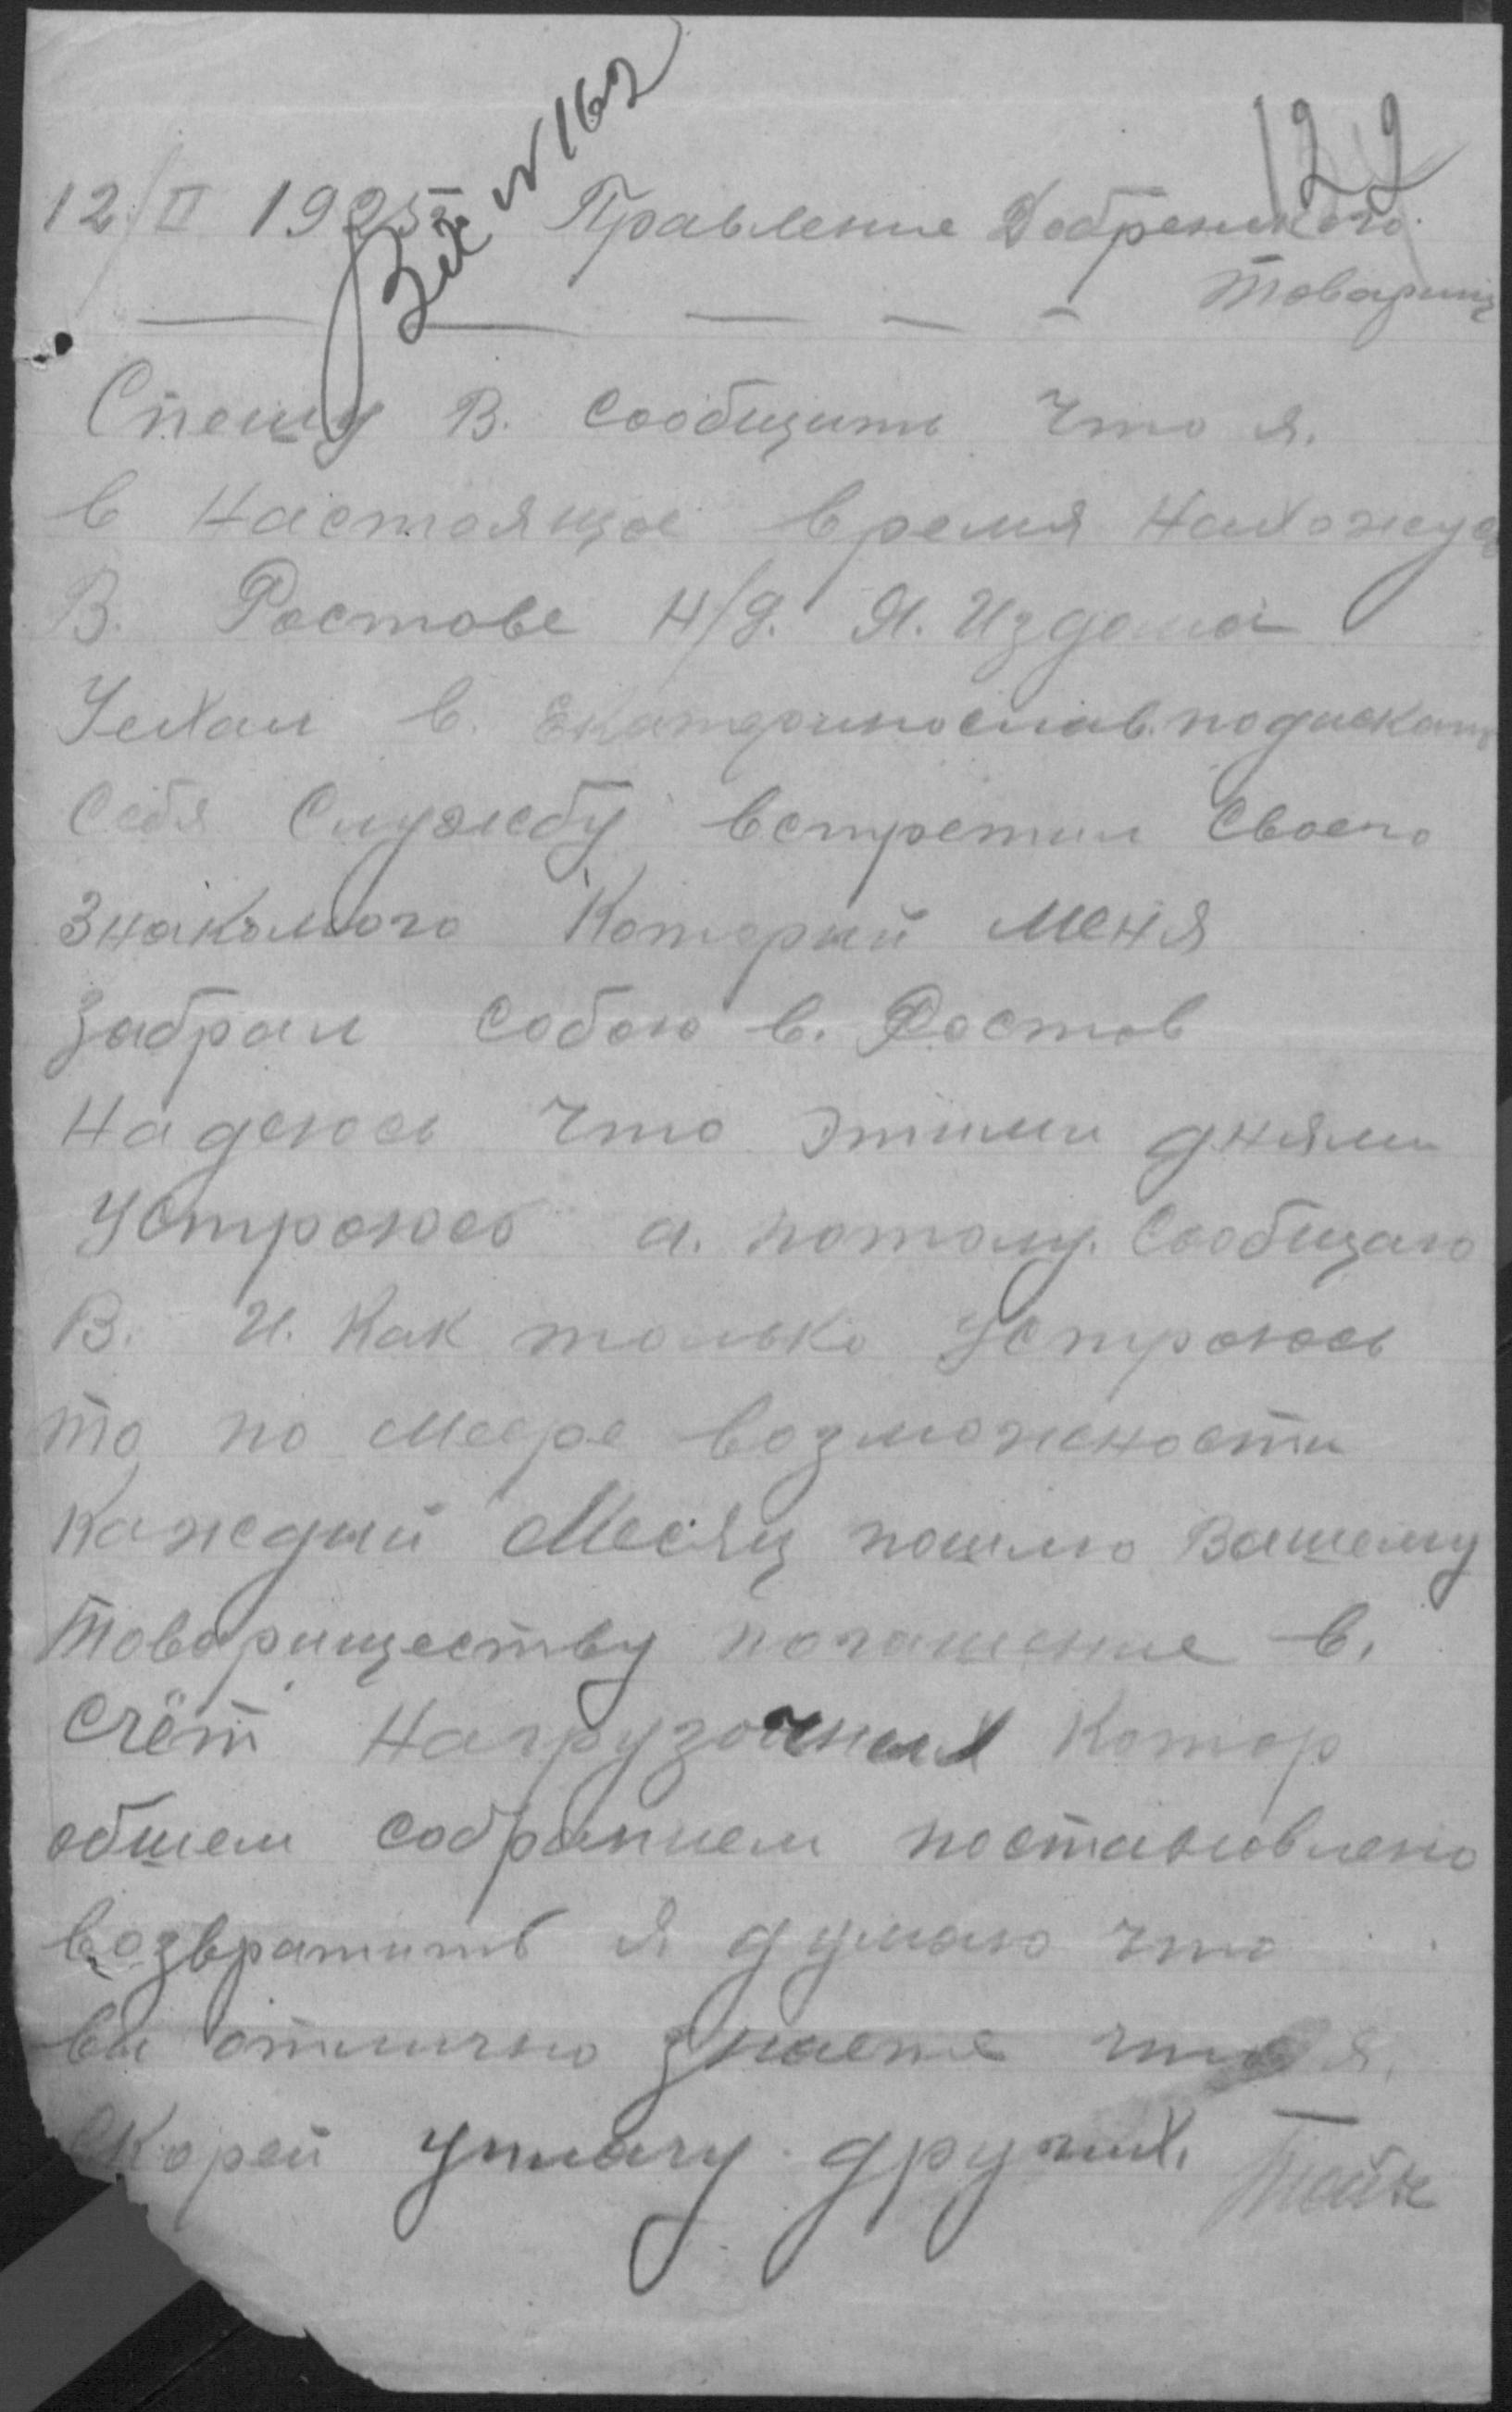 122
Вх №162
12/II 1925 г Правление Добренского
Товарищ
Спешу В. Сообщить что я.
в настоящое время нахожус
В. Ростове Н/Д. Я. Из дома
Уехал в. Екатеринослав. подискать
себя Службу встретил Своего
знакомого Который меня
забрал собою в. Ростов
Надеюсь что этими днями
Устроюсь а. потому. Сообщаю
В. И. Как только Устроюсь
то по меере возможности
каждый Месяц пошлю Вашему
товариществу погашение в.
счёт Нагрузочных Котор
общем собранием постановлено
возвратить Я думаю что
вы отлично знаете что я.
Скорей уплачу других.